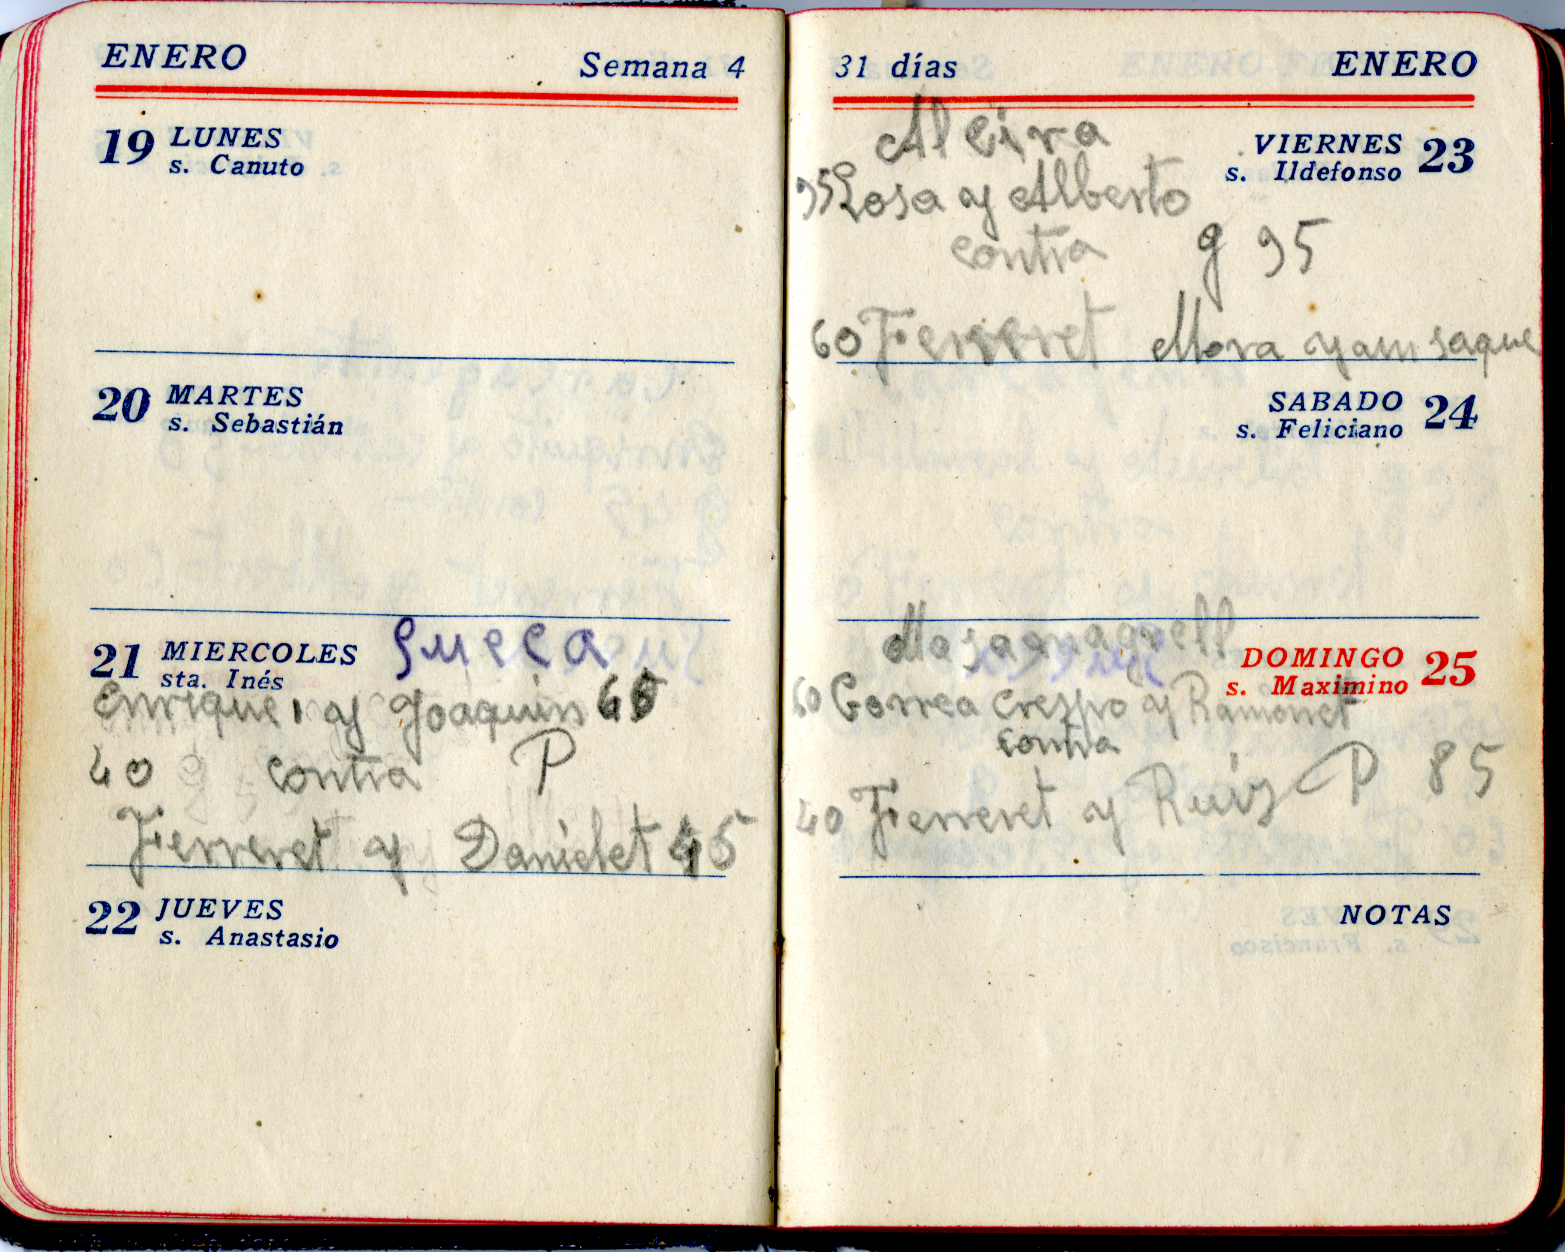 ENERO Semana 4
19 LUNES
s. Canuto
20 MARTES
s. Sebastián
21 MIERCOLES Sueca
sta. Inés
Enrique y Joaquin 65
40 contra P
Ferreret y Danielet 45
22 JUEVES
s. Anastasio
31 días ENERO
Alcira
VIERNES 23
s. Ildefonso
95 Rosa y Alberto
contra g 95
60 Ferreret Mora y am saque
SABADO 24
s. Feliciano
Masamagrell
DOMINGO 25
s. Maximino
60 Correa Crespo y Ramonet
contra
40 Ferreret y Ruiz P 85
NOTAS